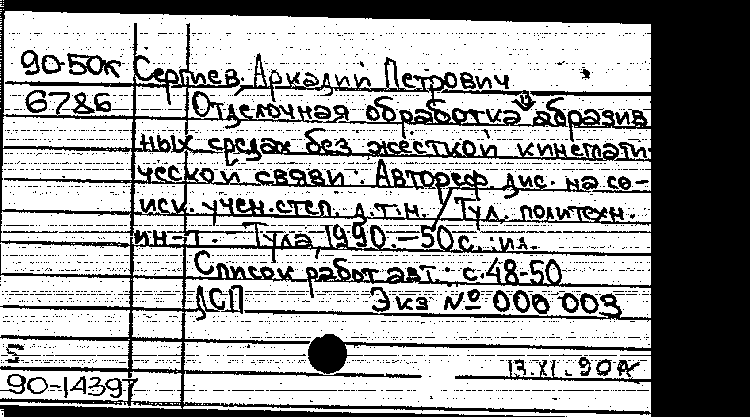 90-50к Сергиев, Аркадий Петрович
6786 Отделочная обработка в абразив
ных средах без жёсткой кинемати-
ческой связи: Автореф. дис. на со-
иск. учен. степ. д.т.н. / Тул. политехн.
ин-т. - Тула, 1990. - 50 с. : ил.
Список работ авт.: с.48-50
ДСП Экз № 000 003
13.XI.90
90-14397